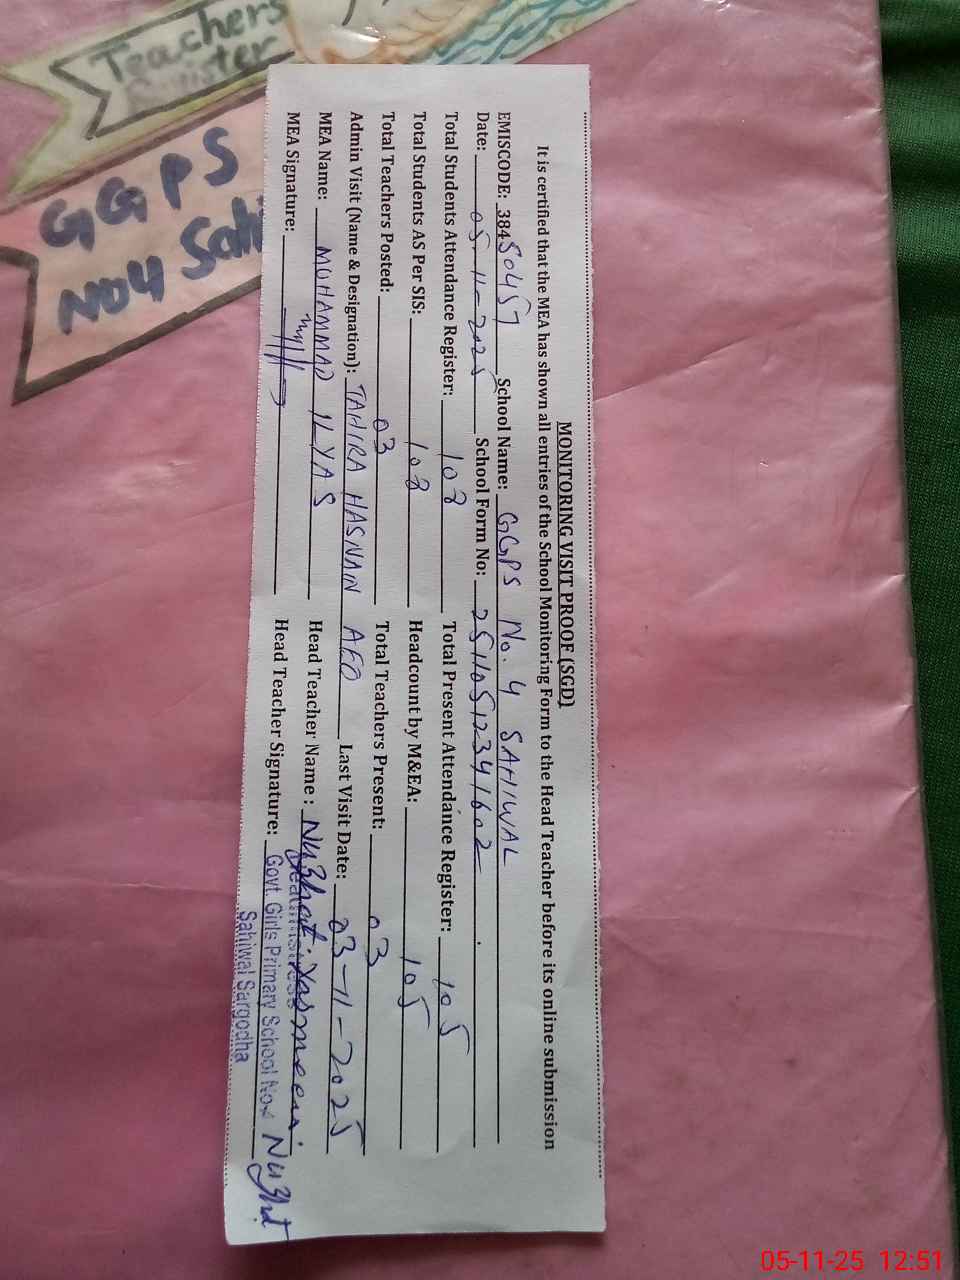 Teachers
GGPS
No4 Sah
MONITORING VISIT PROOF (SGD)
It is certified that the MEA has shown all entries of the School Monitoring Form to the Head Teacher before its online submission
EMISCODE: 38450457 School Name: GGPS No. 4 SAHIWAL
Date: 05-11-2025 School Form No: 25110512341602
Total Students Attendance Register: 108 Total Present Attendance Register: 105
Total Students AS Per SIS: 108 Headcount by M&EA: 105
Total Teachers Posted: 03 Total Teachers Present: 03
Admin Visit (Name & Designation): TAHIRA HASNAIN AEO Last Visit Date: 03-11-2025
MEA Name: MUHAMMAD ILYAS Head Teacher Name : Nuzhat Yasmeen
MEA Signature: Head Teacher Signature: Nuzhat
Headmistress
Govt. Girls Primary School No.4
Sahiwal Sargodha
05-11-25 12:51